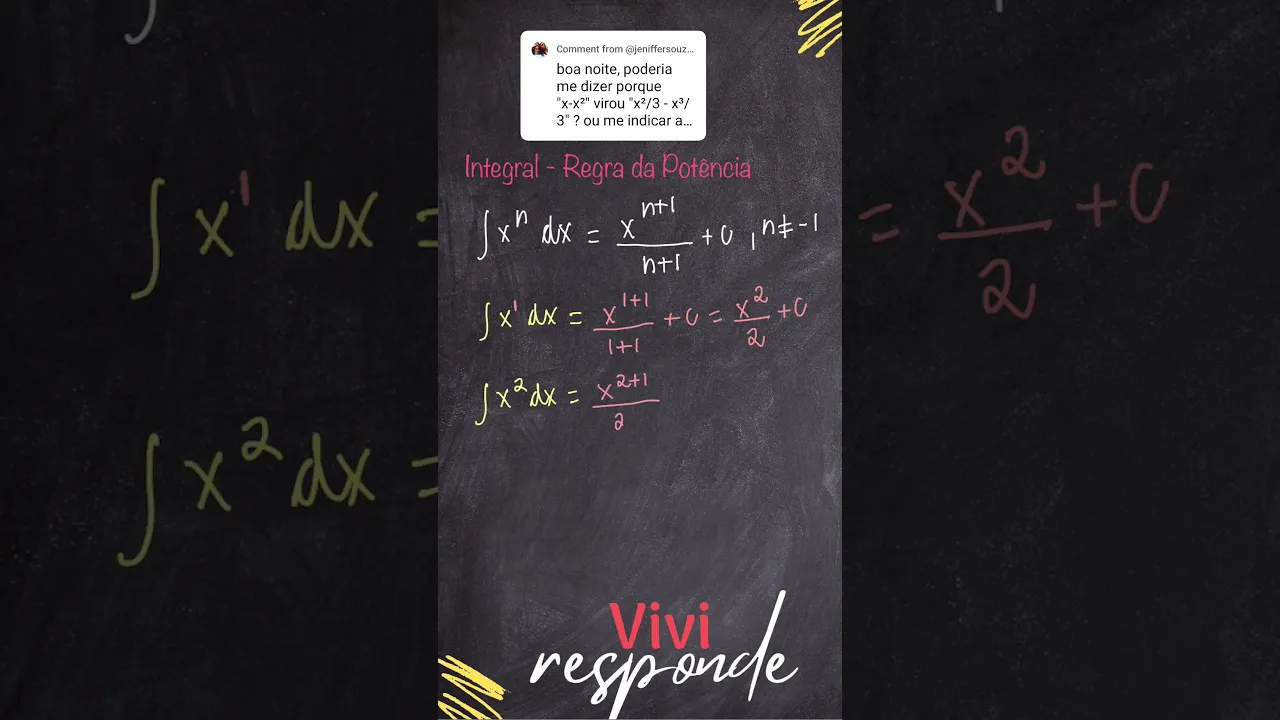 Comment from @jeniffersouz...
boa noite, poderia
me dizer porque
"x-x²" virou "x²/3 - x³/
3" ? ou me indicar a...
Integral - Regra da Potência
∫xⁿ dx = xⁿ⁺¹/n+1 + C , n≠-1
∫x¹ dx = x¹⁺¹/1+1 + C = x²/2 + C
∫x² dx = x²⁺¹/2
Vivi
responde
∫x¹ dx =
= x²/2 + C
∫x² dx =